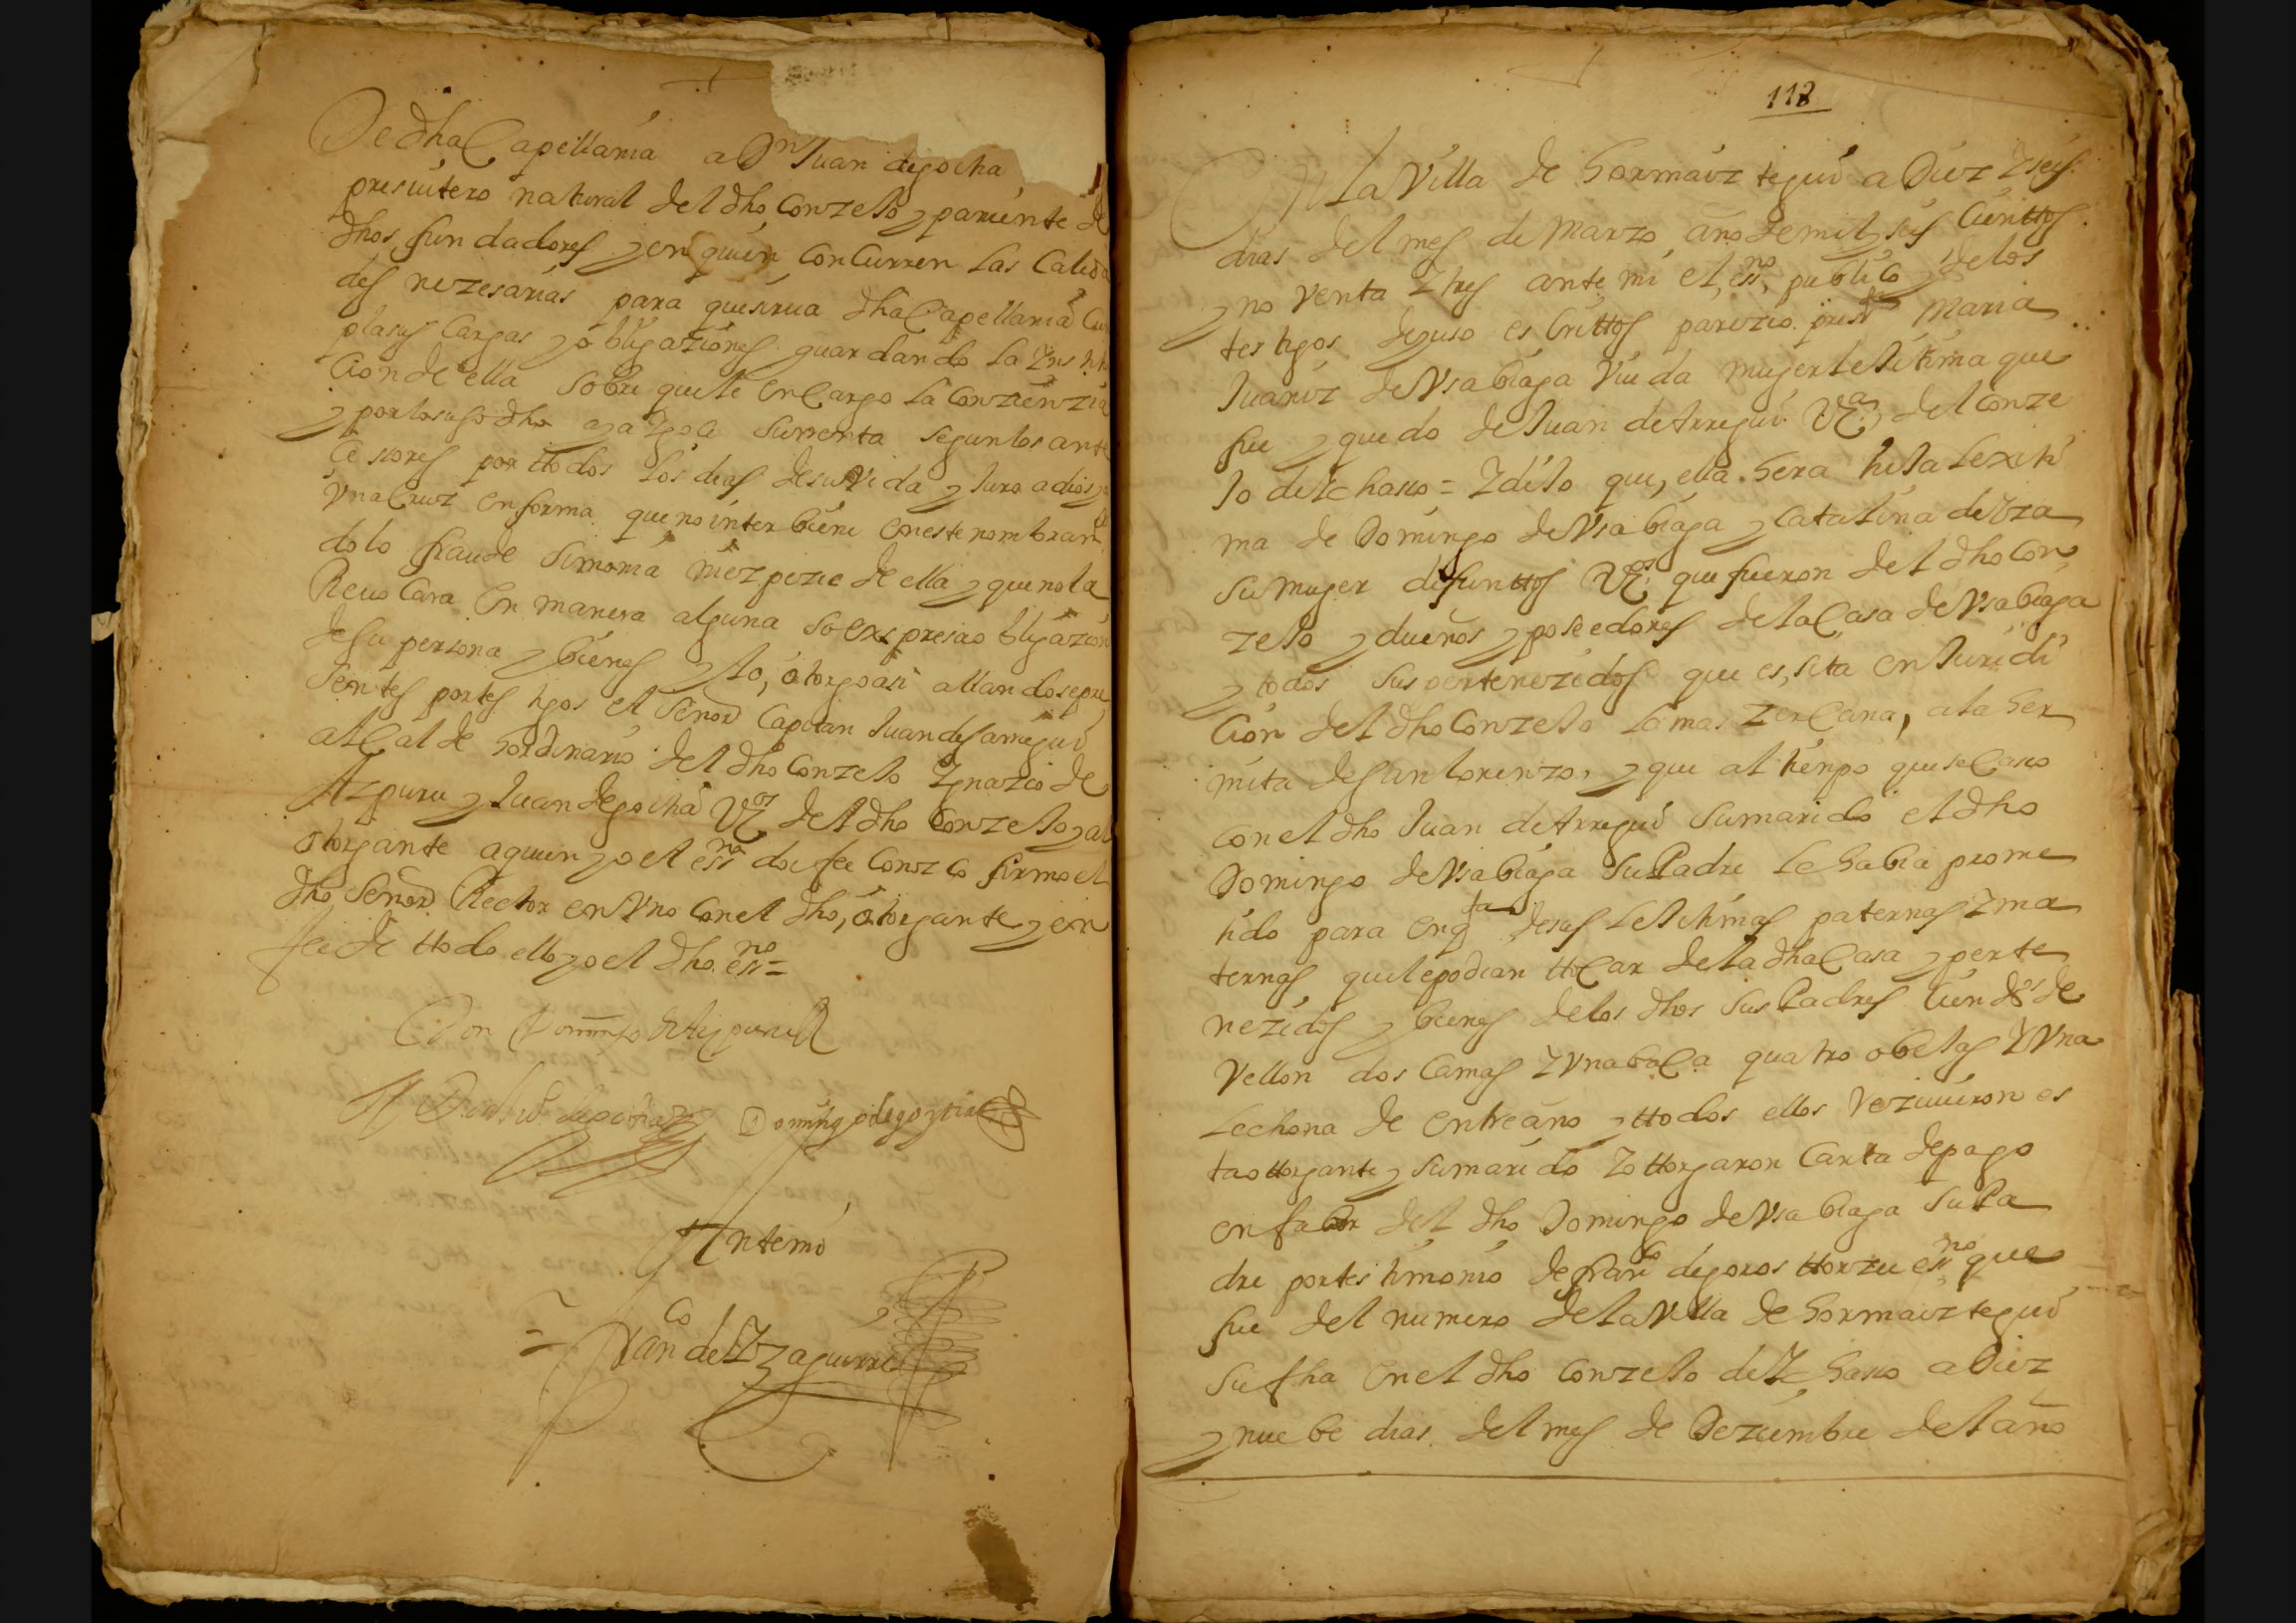 De dha Capellania a Dn Juan de gocha
presuitero natural del dho Conzejo y pariente de
dhos fundadores y en quien Concurren las Calida
des nezesarias para que sirua dha Capellania Cun
pla sus Cargas y obligaziones guardando la Ynstitu
Cion de ella sobre que le encargo la Conzienzia
y por lo suso dho aya y goze su rrenta segun los ante
cesores por ttodos los dias de su vida y juro a dios y
Vna Cruz en forma que no interbiene en este nombram
do lo fraude simonia ni espezie de ella y que no la
Reuocara en manera alguna so expresa obligazion
de su persona y bienes y lo, otorgo asi allandose pre
sentes por testigos el Señor Capitan Juan de Sarregui
alCalde hordinario del dho Conzejo Ygnazio de
Azpuru y Juan de gocha Vos del dho Conzejo y al
otorgante a quien yo el essno doi fee Conozco firmo el
dho Señor Rector en Vno Con el dho, otorgante y en
fee de ttodo ello yo el dho essno =
Don Domingo de Azpuru
Domingo de goyzti
Ante mi
= Franco de Yzaguirre
112
En la Villa de hormaiztegui a Diez y seis
dias del mes de Marzo año de mil y seis Cienttos
y no venta y tres ante mi el, essno, publico y de los
testigos de yuso escrittos parezio presste Maria
Juaniz de Vsabiaga Viuda muger lejitima que
fue y quedo de Juan de Arregui Vo del Conze
jo de Ychasso = y dijo que, ella hera hija lexiti
ma de Domingo de Vsabiaga y Catalina de Yza
su muger difunttos Vos que fueron del dho Con
zejo y dueños y poseedores de la Casa de Vsabiaga
y todos sus pertenezidos que es, sita en Juridi
cion del dho Conzejo la mas zercana, a la her
mita de San Lorenzo, y que al tienpo que se Caso
con el dho Juan de Arregui su marido el dho
Domingo de Vsabiaga su Padre le habia prome
tido para en qta de sus lejitimas paternas y ma
ternas que le podian ttocar de la dha Casa y perte
nezidos y bienes de los dhos sus Padres Cien dos de
Vellon dos Camas y Vna baca quatro obejas y Vna
lechona de entreaño y ttodos ellos rezivieron es
ta ottorgante y su marido y ottorgaron Carta de pago
en fabor del dho Domingo de Vsabiaga su Pa
dre por testimonio de franco de goros ttorzu essno que
fue del numero de la Villa de hormaiztegui
su fha en el dho Conzejo de Ychasso a Diez
y nuebe dias del mes de Dezienbre del año